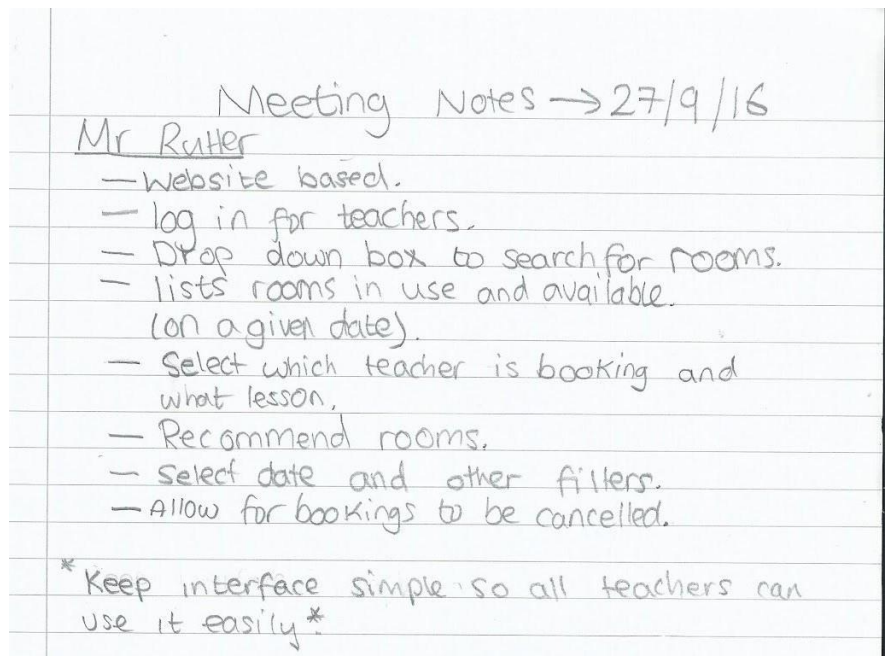 Meeting Notes → 27/9/16
Mr Rutter
— Website based.
— log in for teachers.
— Drop down box to search for rooms.
— lists rooms in use and available.
(on a given date).
— Select which teacher is booking and
what lesson.
— Recommend rooms.
— Select date and other filters.
— Allow for bookings to be cancelled.
* Keep interface simple so all teachers can
use it easily *